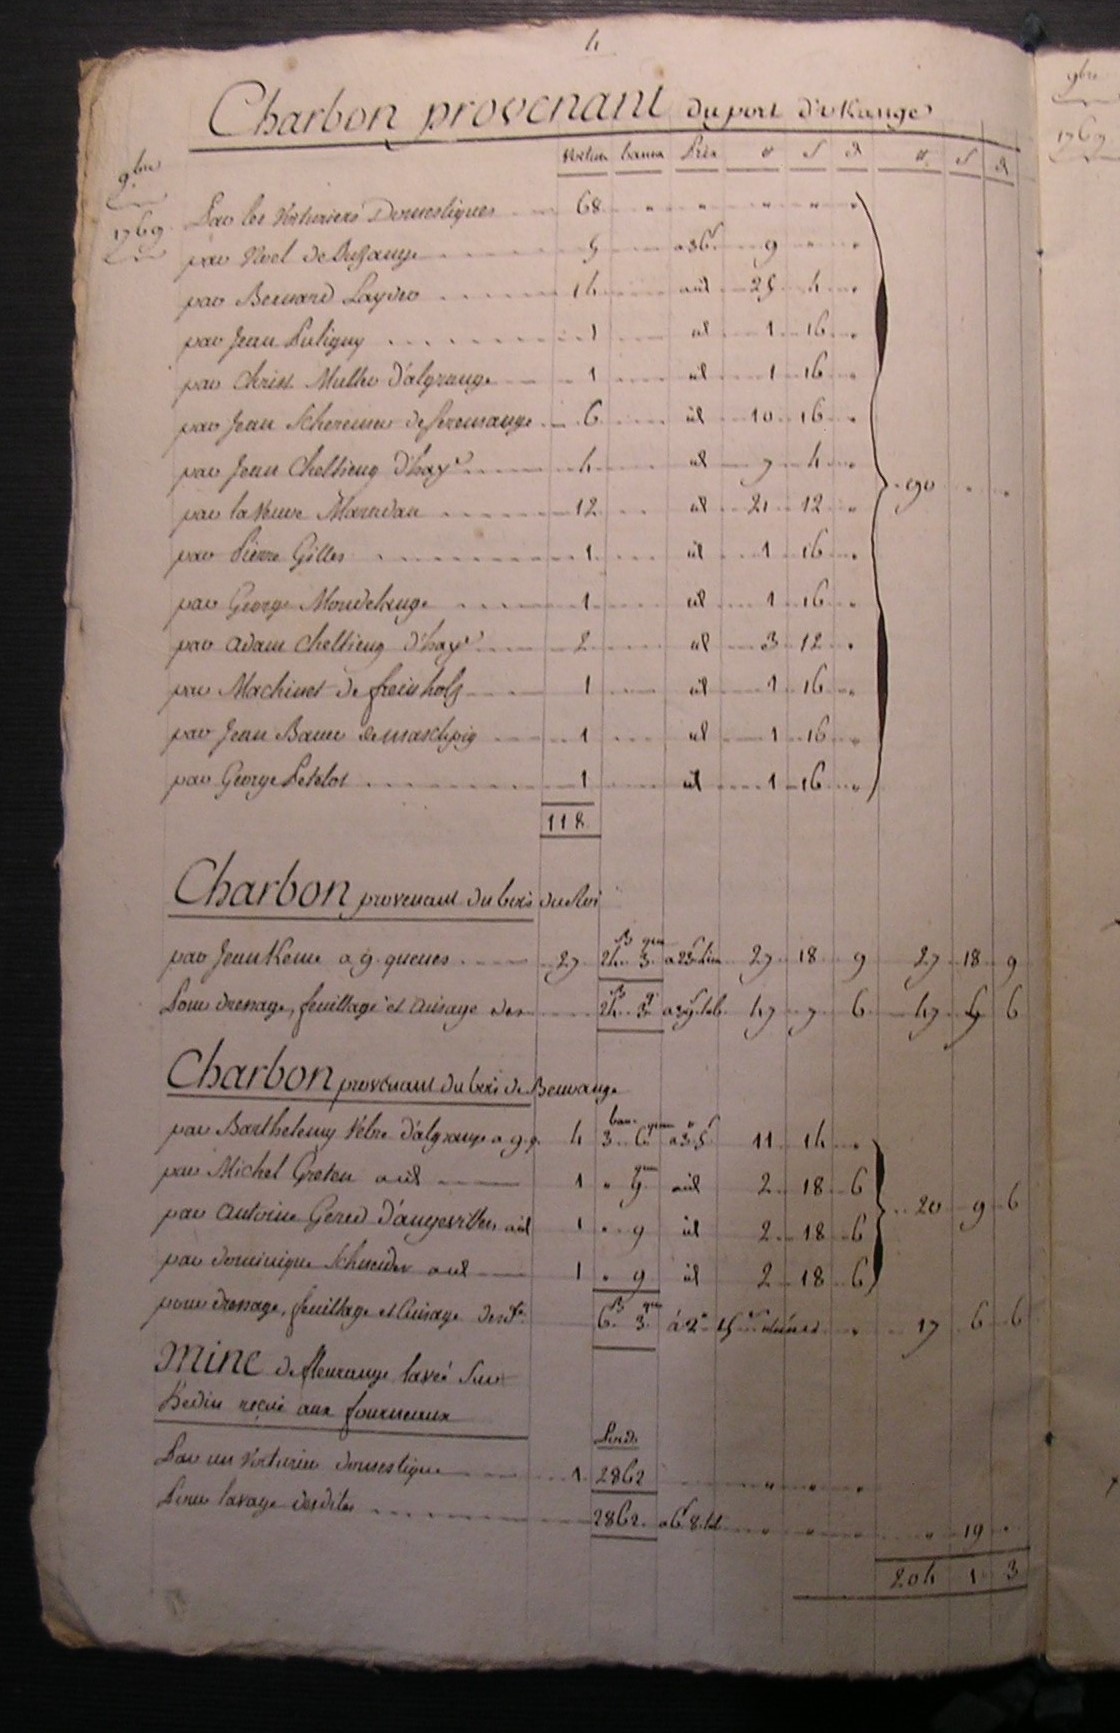 4
Charbon provenant du port d'ukange
9bre 1769
Voitures bannes Prix # S d # S d
Par les Voituriers Domestiques 68 " " " " "
par Noel de 5 a 36s 9 " "
par Bernard Laydro 14 aid 25 4 "
par Jean Putigny 1 id 1 16 "
par Christ Muller d'algrange 1 id 1 16 "
par Jean Schereiner de feremange 6 id 10 16 "
par Jean Cheltieng d'haye 4 id 7 4 "
par la Veuve Marredau 12 id 21 12 "
par Pierre Gilles 1 id 1 16 "
par George Mondelange 1 id 1 16 "
par adam Cheltieng d'haye 2 id 3 12 "
par Machinot de freinholz 1 id 1 16 "
par Jean Bauer de 1 id 1 16 "
par George Petelot 1 id 1 16 "
90 " "
118
Charbon provenant du bois du Roi
B quee
par Jean Keme a 9 queues 27 24 3 a 23s 27 18 9 27 18 9
B q
Pour dressage, feuillage et Cuisage des 24 3 a 39s 47 7 6 47 6
Charbon provenant du bois de Beuvange
ban queu
par Barthelemy Vebre d'algrange a 9 q. 4 3 6 11 14 "
que
par Michel Greten aid 1 " 9 aid 2 18 6
par antoine Gered d'angevillers aid 1 " 9 id 2 18 6
par dominique Schneider aid 1 " 9 id 2 18 6
20 9 6
B que
pour dressage, feuillage et Cuisage desd. 6 3 a 2# 15s " 17 6 6
Mine de fleurange lavée Sur
Hedin reçue aux fourneaux
Poids
Par un Voiturier domestique 1 2862 " " "
Pour lavage desdites 2862 a 6s 8d " " " " 19 "
204 1 3
9bre
1769